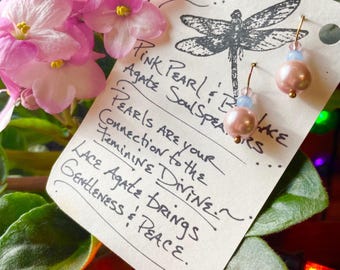 Pink Pearl & Blue Lace
Agate SoulSpeakers...
Pearls are your
Connection to the
Feminine Divine.~
Lace Agate brings
Gentleness & Peace.